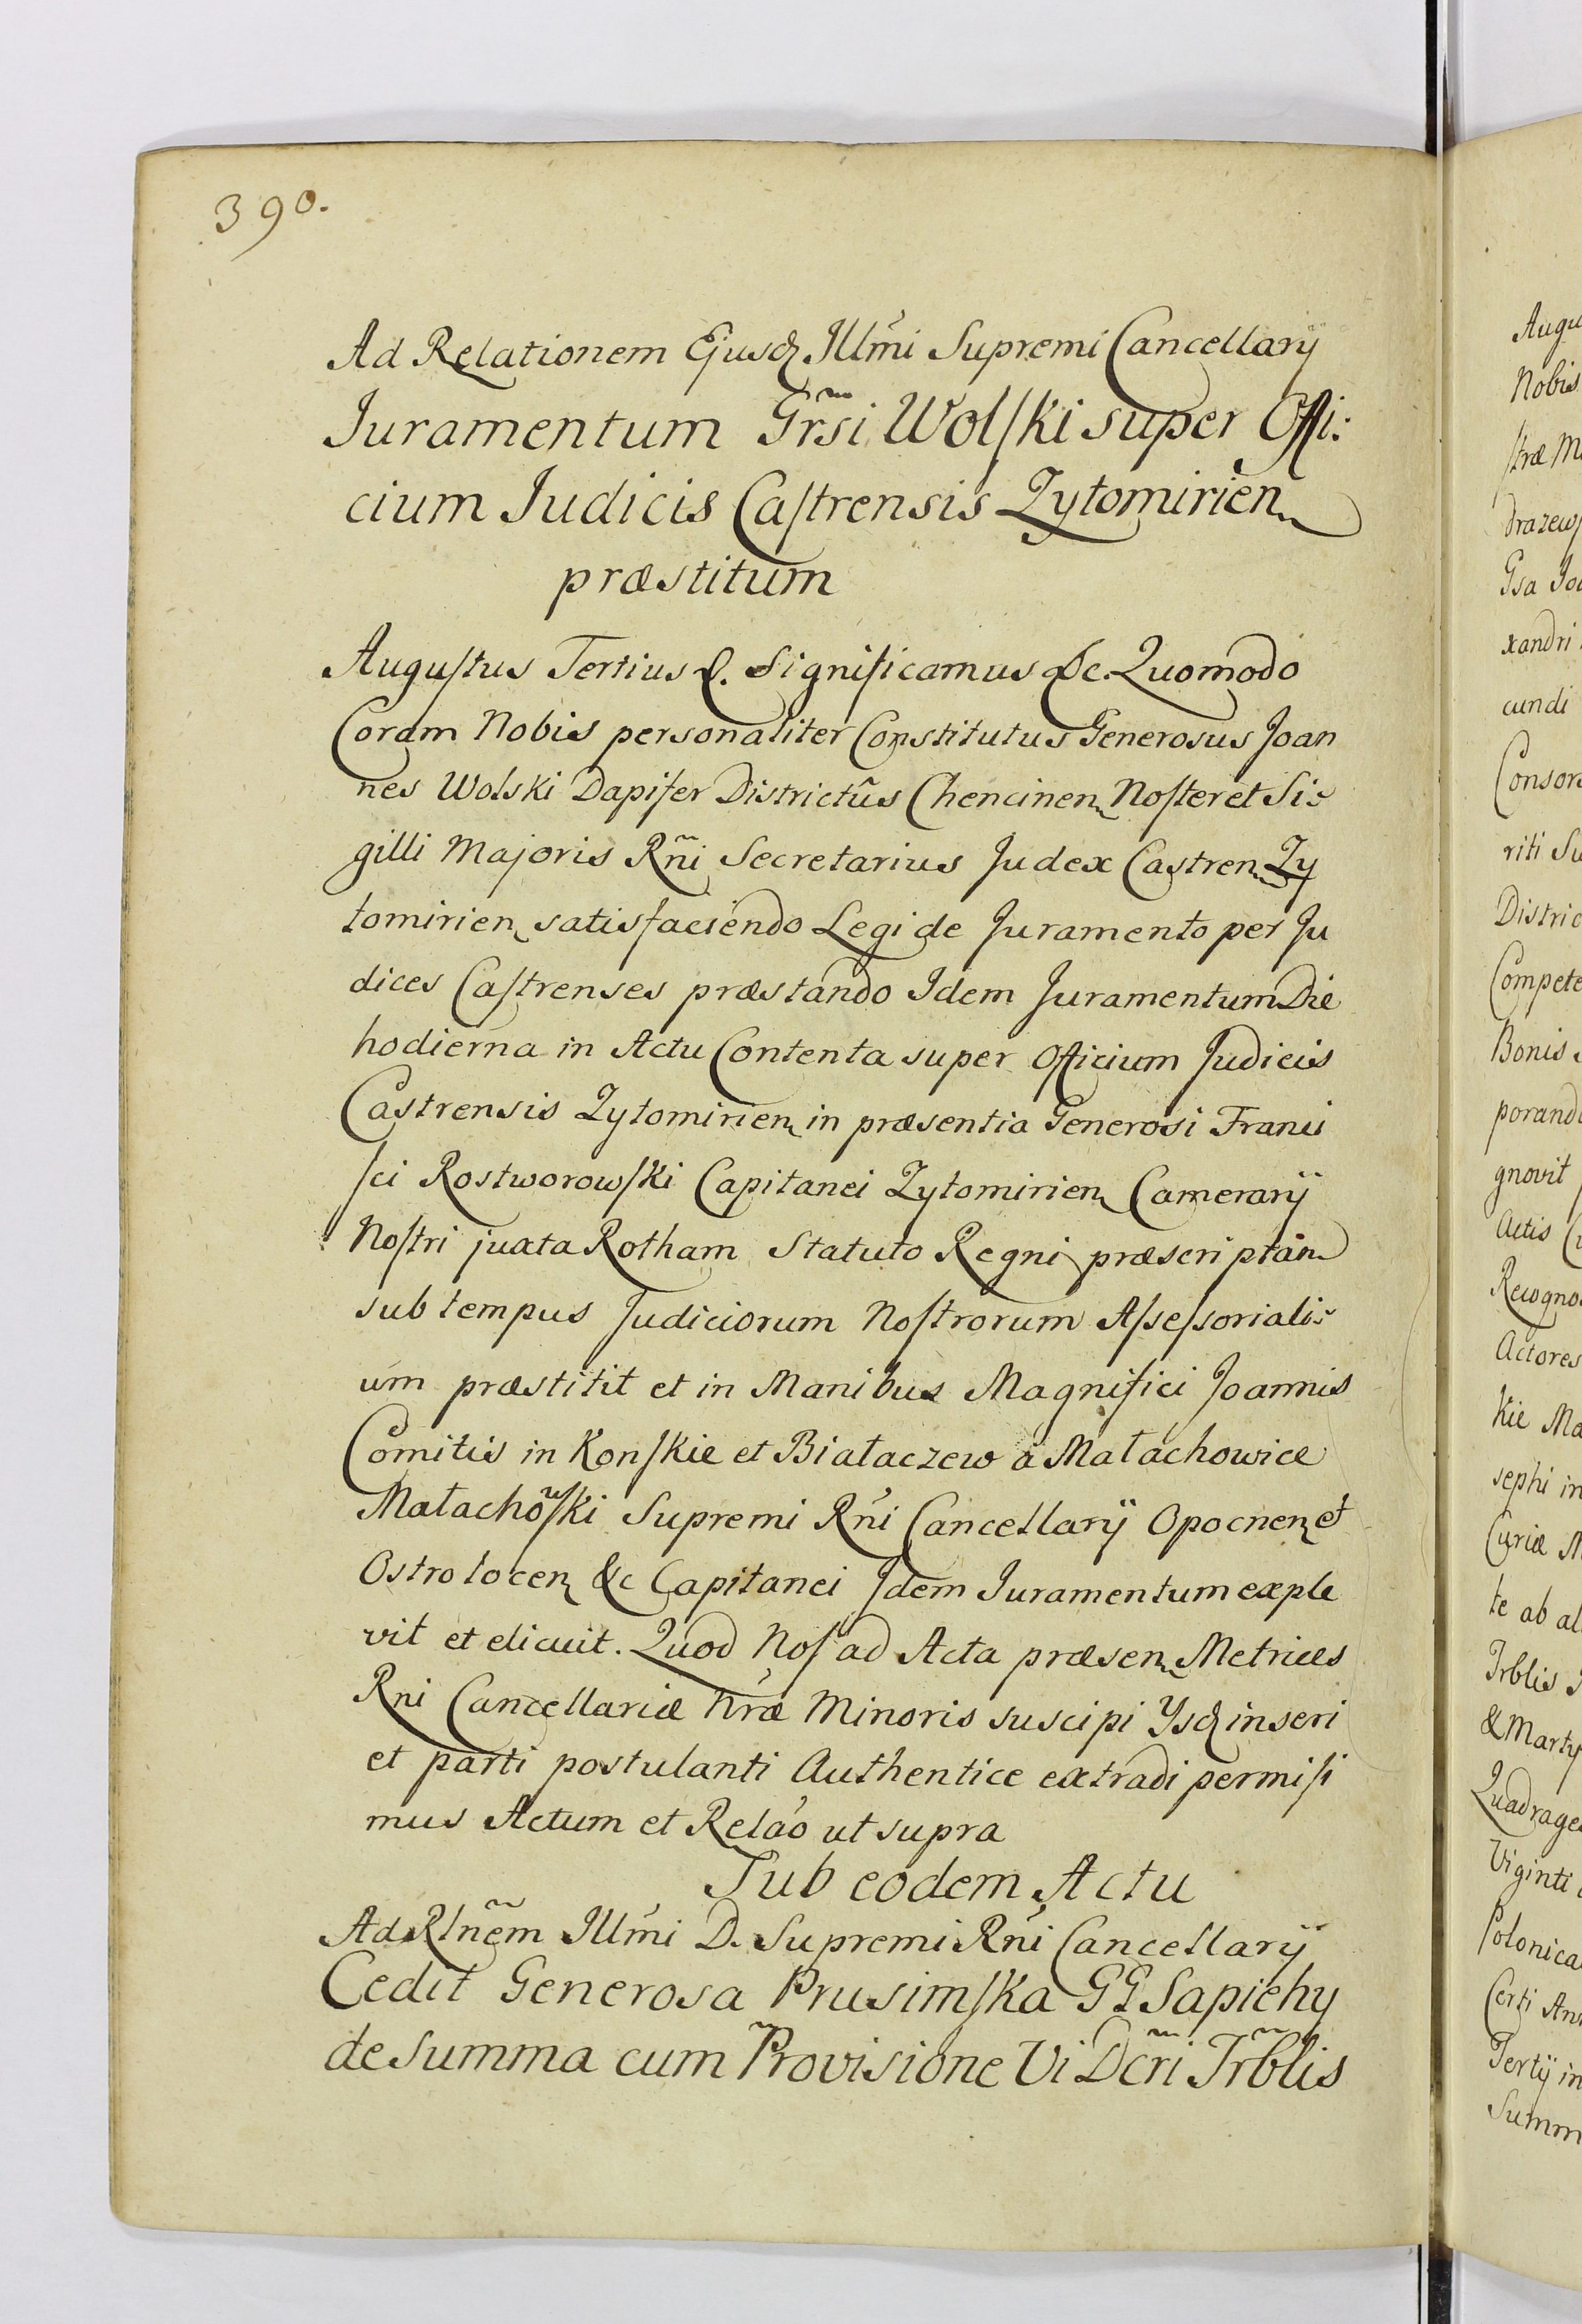 390.
Ad Relationem Ejusdꝫ Illm̃i Supremi Cancellarÿ
Juramentum Gr̃si Wolſki super Offi:
cium Judicis Caſtrensis Zytomirien
præstitum
Auguſtus Tertius &. Significamus &c. Quomodo
Coram Nobis personaliter Constitutus Generosus Joan
nes Wolski Dapifer Districtûs Chencinen Noſter et Si:
gilli Majoris Rñi Secretarius Judex Castren Zy
tomirien satisfaciendo Legi de Juramento per Ju
dices Caſtrenses præstando Idem Juramentum Die
hodierna in Actu Contenta super Officium Judicis
Castrensis Zytomirien in præsentia Generosi Franci
ſci Rostworowſki Capitanei Zytomirien Camerarÿ
Noſtri juxta Rotham Statuto Regni præscriptam
sub tempus Judiciorum Noſtrorum Aſseſsoriali:
um præstitit et in Manibus Magnifici Joannis
Comitis in Konſkie et Białaczew à Małachowice
Małachowſki Supremi Rńi Cancellarÿ Opocnen et
Ostrołocen &c Capitanei Idem Juramentum exple
vit et elicuit. Quod Noſ ad Acta præsen Metrices
Rni Cancellariæ Nr̃æ Minoris suscipi Ysdꝫ inseri
et parti postulanti Authentice extradi permiſi
mus Actum et Relão ut supra
Sub eodem Actu
Ad Rlnẽm Illm̃i D. Supremi Rńi Cancellarÿ
Cedit Generosa Prusimſka GG Sapiehy
de Summa cum Provisione Vi Dcr̃i Trb̃lis
Augu
Nobis
ſtræ M
drazewſ
Gsa Jo
xandri
cundi
Consor
riti Su
Distric
Compete
Bonis
porando
gnovit
Actis
Recogno
Actores
Kie Ma
sephi in
Curiæ M
te ab al
Trblis
& Marty
Quadrage
Viginti
Polonica
Certi An
Tertÿ in
Summ